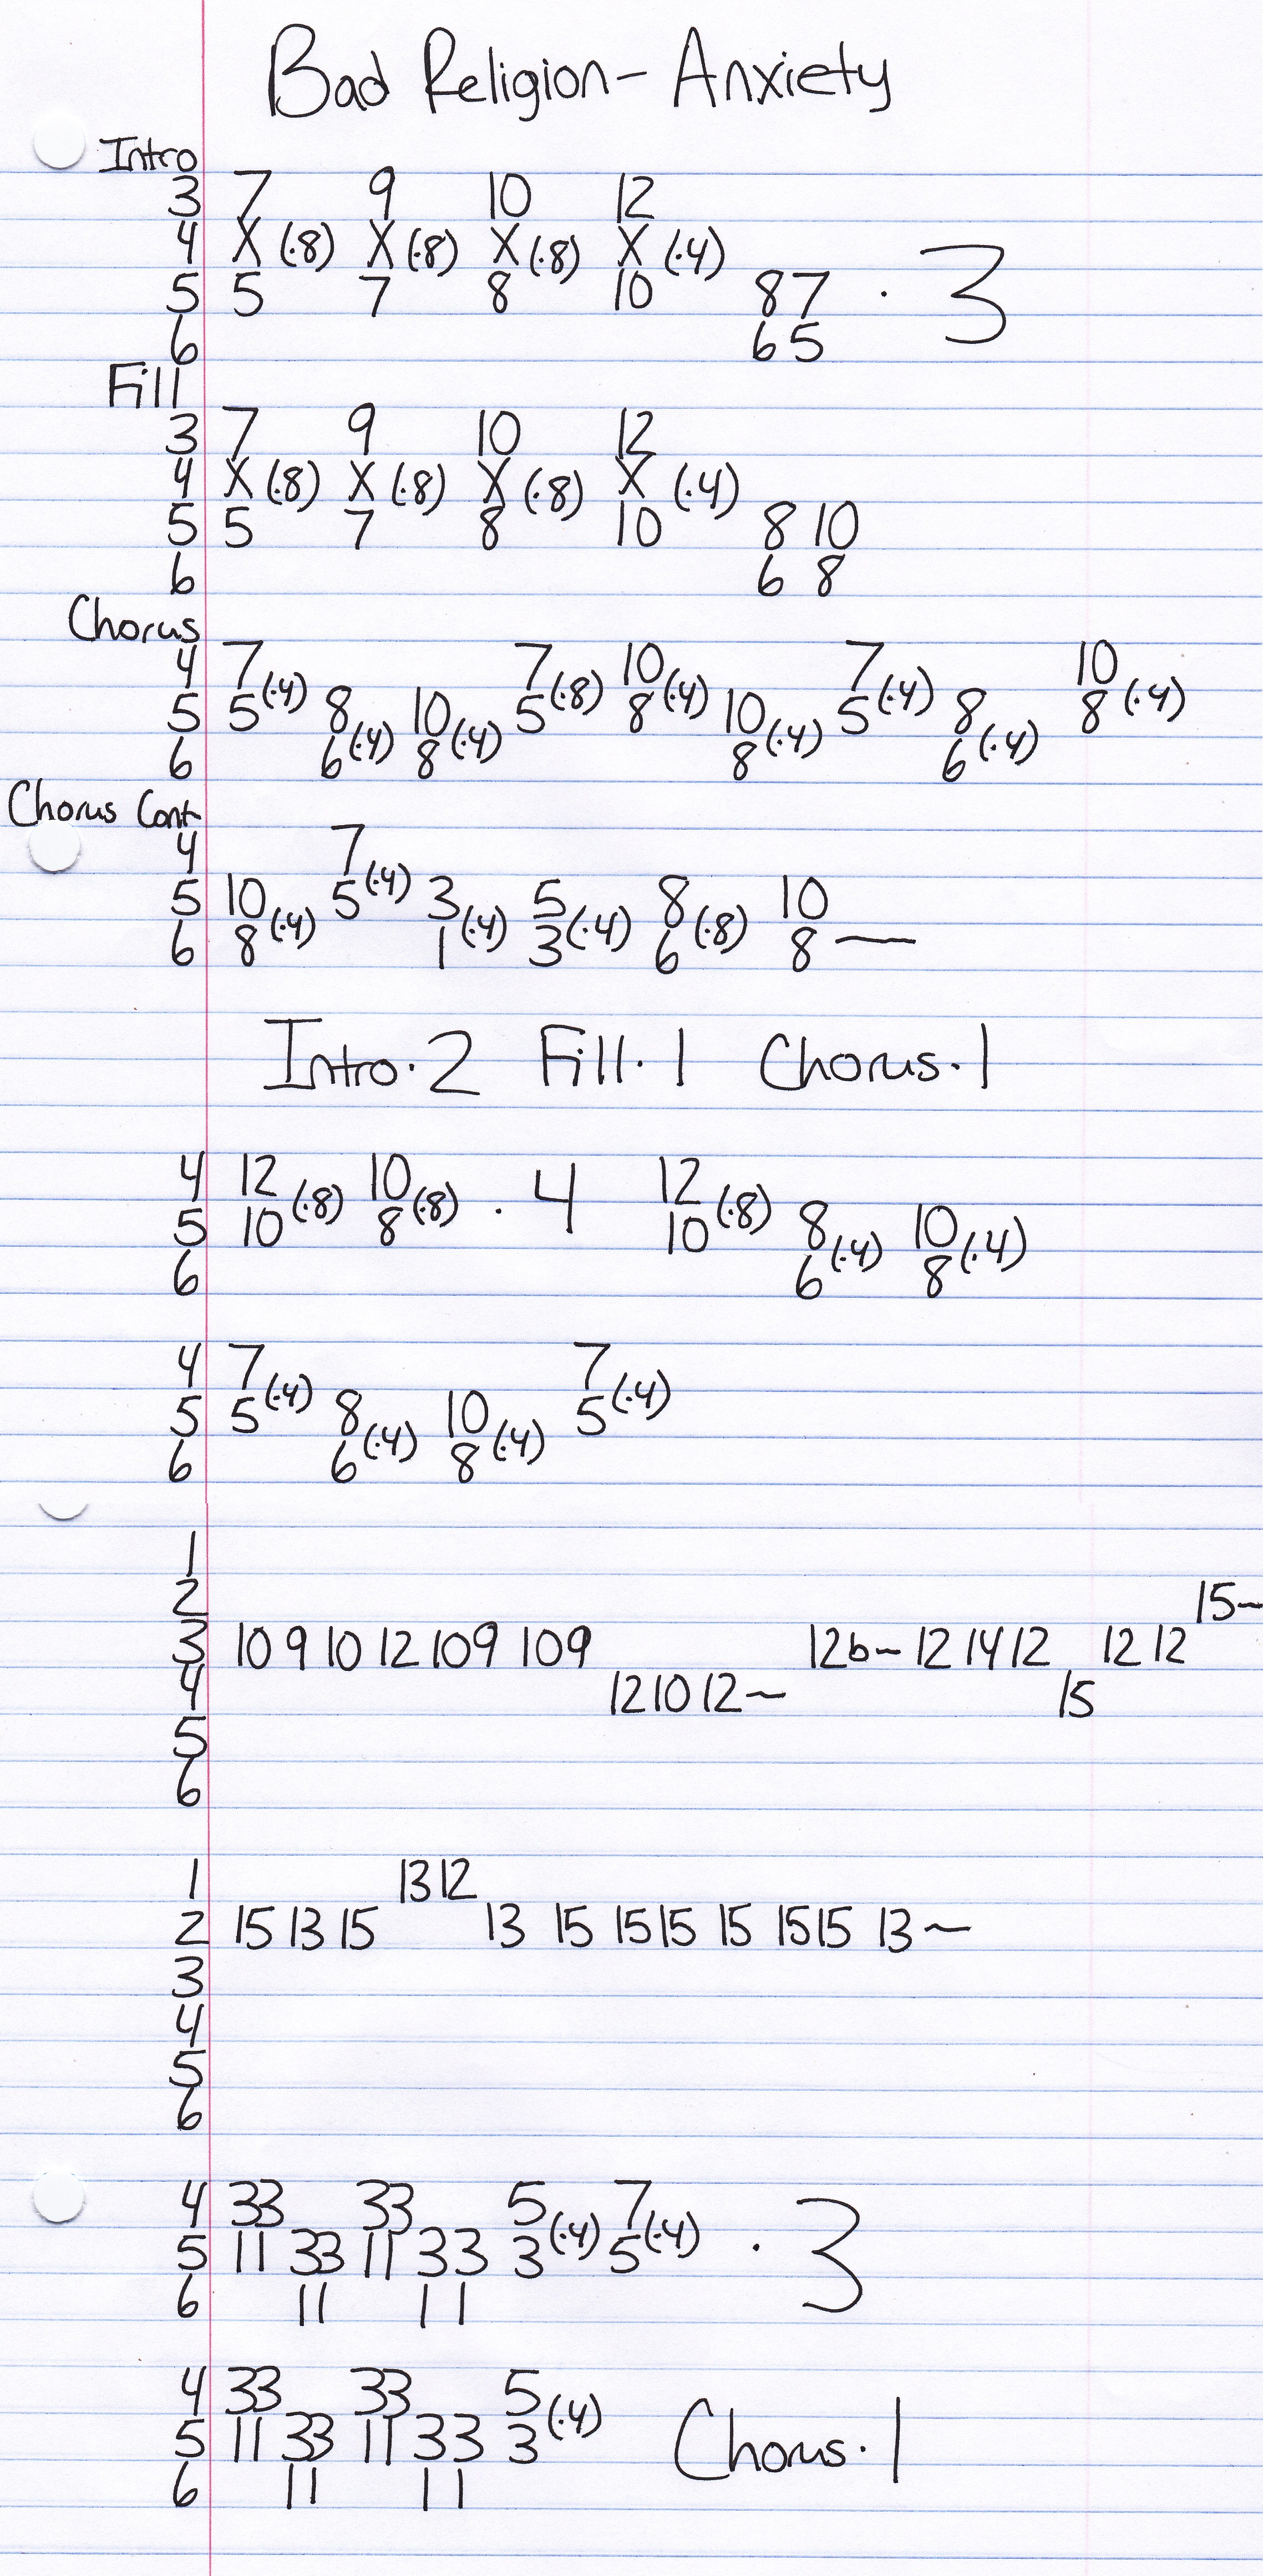 Bad Religion - Anxiety
Intro
3 7 9 10 12
4 X (·8) X (·8) X (·8) X (·4)
5 5 7 8 10 8 7 · 3
6 6 5
Fill
3 7 9 10 12
4 X (·8) X (·8) X (·8) X (·4)
5 5 7 8 10 8 10
6 6 8
Chorus
4 7 7 10 7 10
5 5 (·4) 8 10 5 (·8) 8 (·4) 10 5 (·4) 8 8 (·4)
6 6 (·4) 8 (·4) 8 (·4) 6 (·4)
Chorus Cont
4 7
5 10 5 (·4) 3 5 8 10
6 8 (·4) 1 (·4) 3 (·4) 6 (·8) 8 —
Intro · 2 Fill · 1 Chorus · 1
4 12 10 12
5 10 (·8) 8 (·8) · 4 10 (·8) 8 10
6 6 (·4) 8 (·4)
4 7 7
5 5 (·4) 8 10 5 (·4)
6 6 (·4) 8 (·4)
1
2 15~
3 10 9 10 12 10 9 10 9 12b~ 12 14 12 12 12
4 12 10 12~ 15
5
6
1 13 12
2 15 13 15 13 15 15 15 15 15 15 13~
3
4
5
6
4 33 33 5 7
5 11 33 11 33 3 (·4) 5 (·4) · 3
6 11 11
4 33 33 5
5 11 33 11 33 3 (·4) Chorus · 1
6 11 11